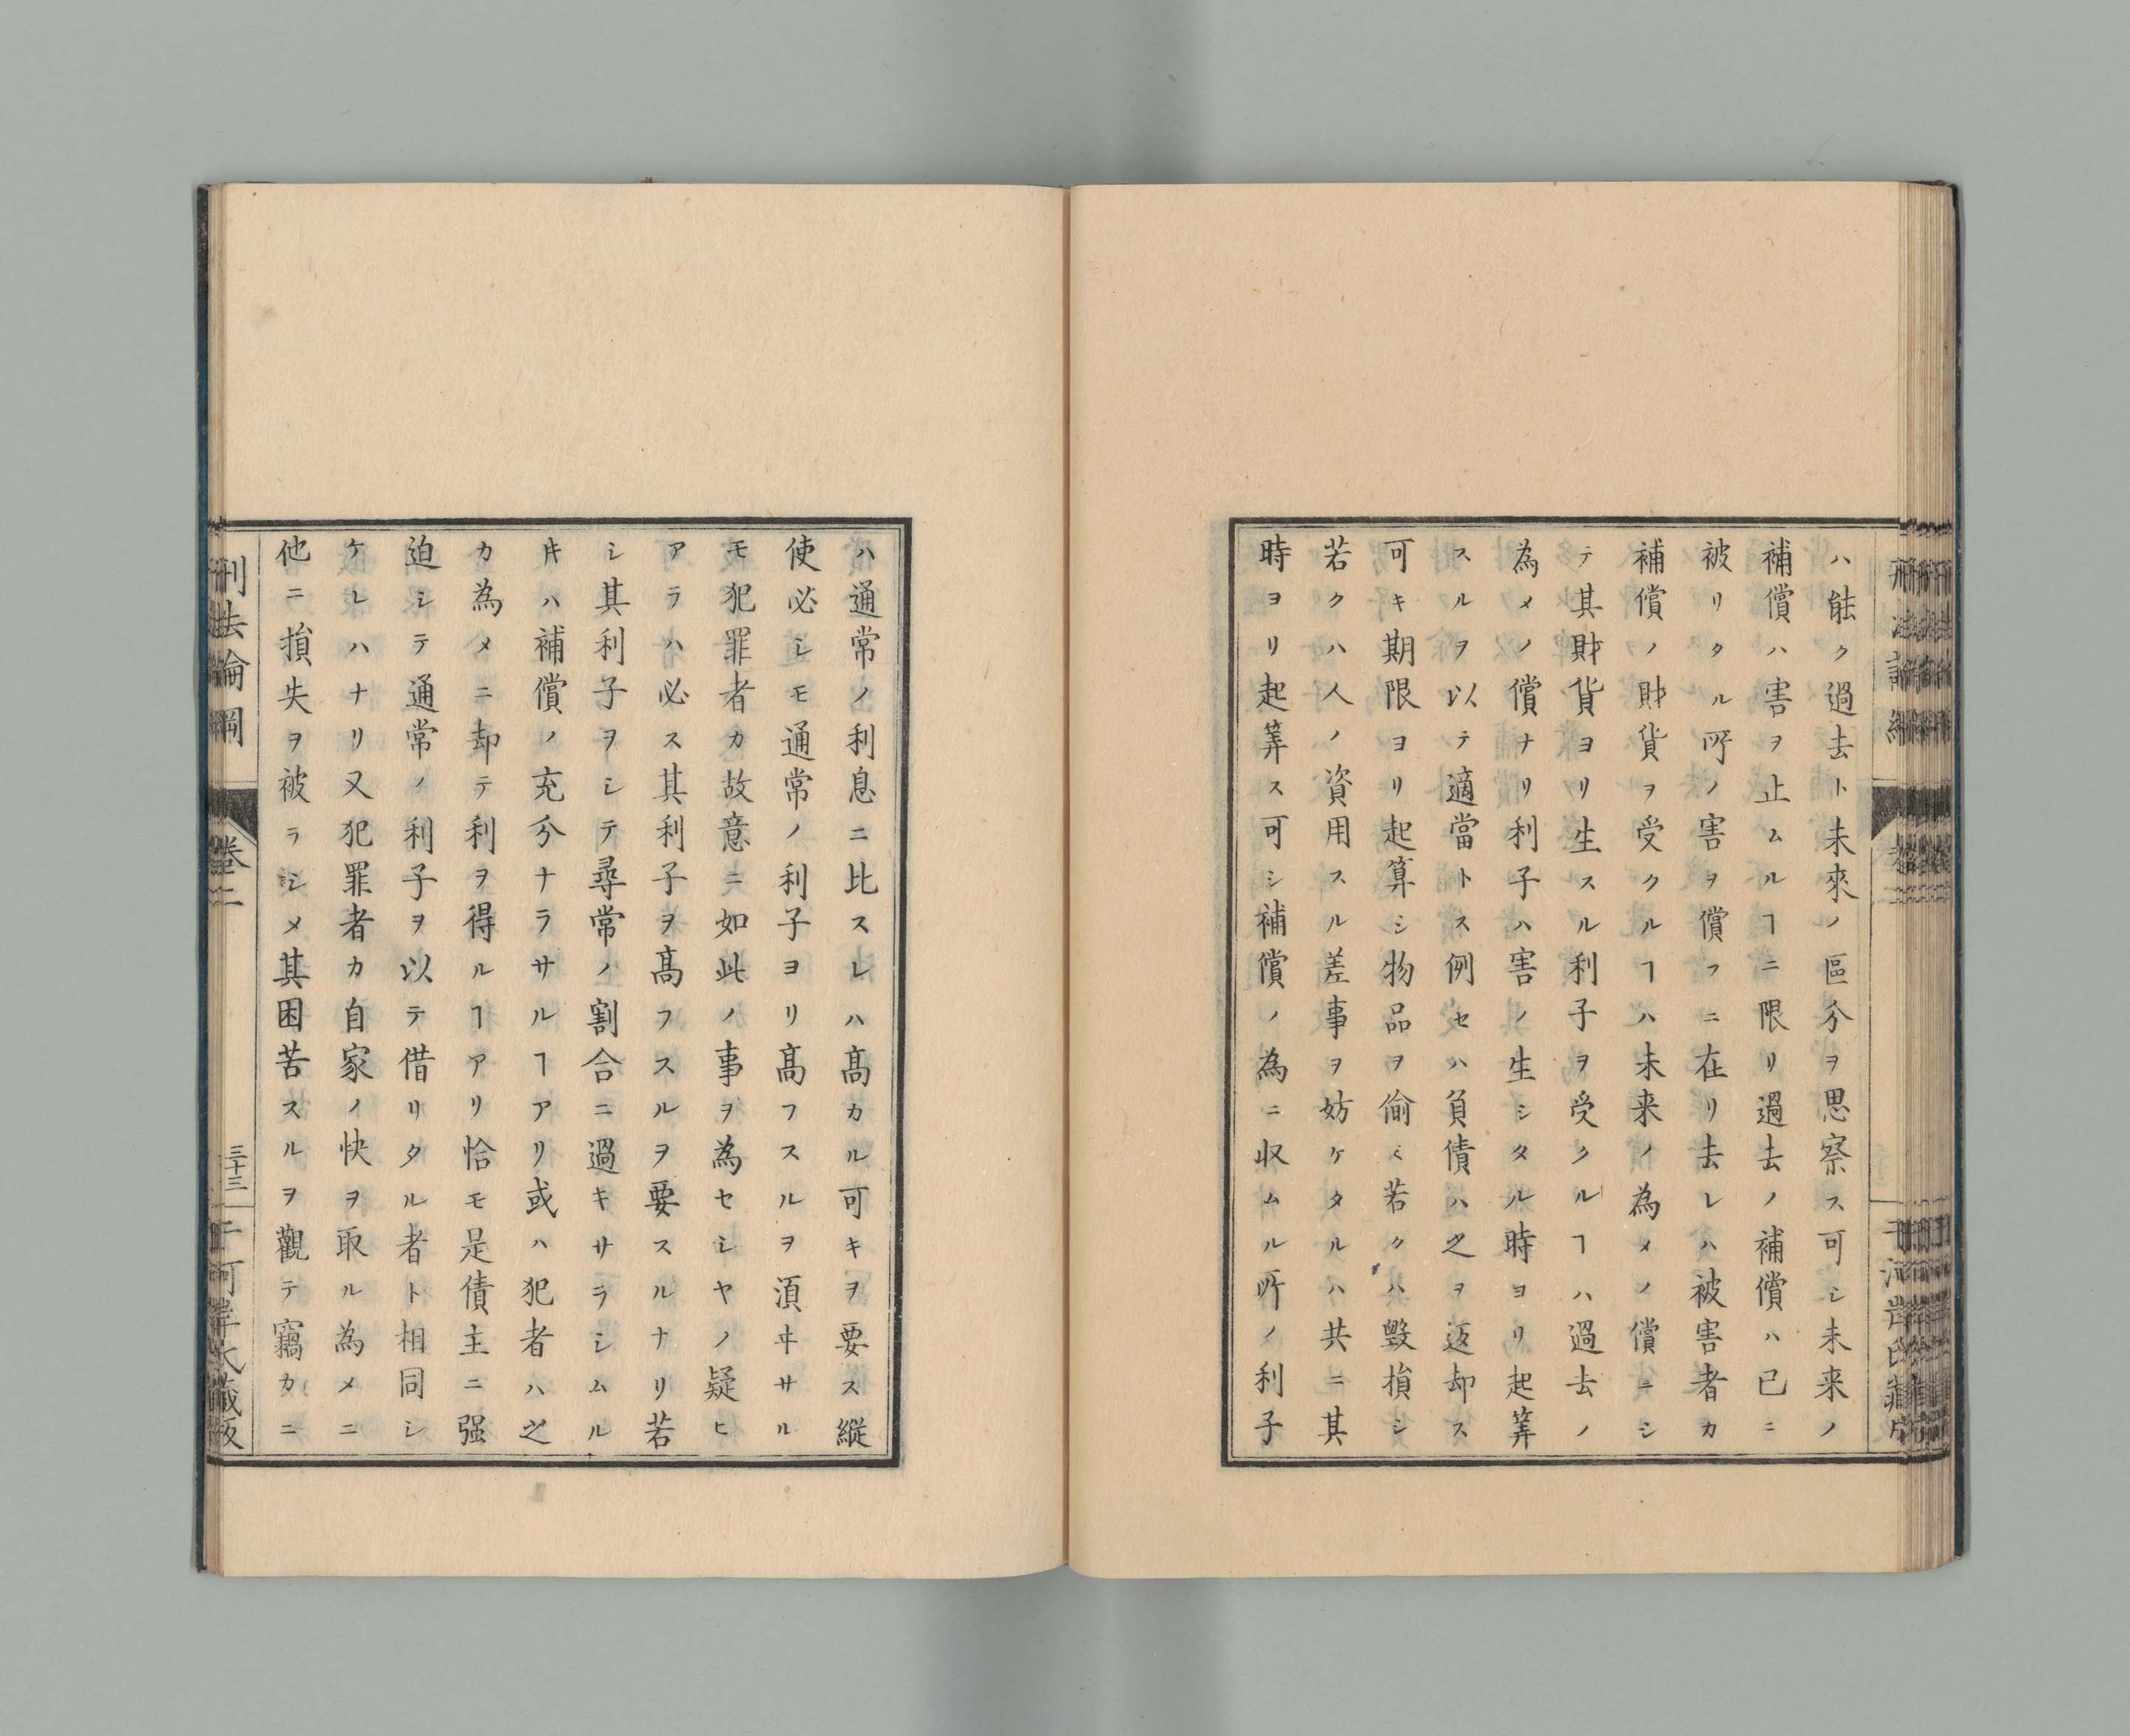 ハ能ク過去ト未來ノ區分ヲ思察ス可シ未来ノ
補償ハ害ヲ止ムルヿニ限リ過去ノ補償ハ已ニ
被リタル所ノ害ヲ償フニ在リ去レハ被害者カ
補償ノ財貨ヲ受クルヿハ未来ノ為メノ償ニシ
テ其財貨ヨリ生スル利子ヲ受クルヿハ過去ノ
為メノ償ナリ利子ハ害ノ生シタル時ヨリ起筭
スルヲ以テ適當トス例セハ負債ハ之ヲ返却ス
可キ期限ヨリ起算シ物品ヲ偷ミ若クハ毀損シ
若クハ人ノ資用スル差事ヲ妨ケタルハ共ニ其
時ヨリ起筭ス可シ補償ノ為ニ収ムル所ノ利子
ハ通常ノ利息ニ比スレハ髙カル可キヲ要ス縦
使必シモ通常ノ利子ヨリ髙フスルヲ須ヰサル
モ犯罪者カ故意ニ如此ノ事ヲ為セシヤノ疑ヒ
アラハ必ス其利子ヲ髙フスルヲ要スルナリ若
シ其利子ヲシテ尋常ノ割合ニ過キサラシムル
片ハ補償ノ充分ナラサルヿアリ或ハ犯者ハ之
カ為メニ却テ利ヲ得ルヿアリ恰モ是債主ニ强
迫シテ通常ノ利子ヲ以テ借リタル者ト相同シ
ケレハナリ又犯罪者カ自家ノ快ヲ取ル為メニ
他ニ損失ヲ被ラシメ其困苦スルヲ觀テ竊カニ
刑法論綱
卷二
三十三